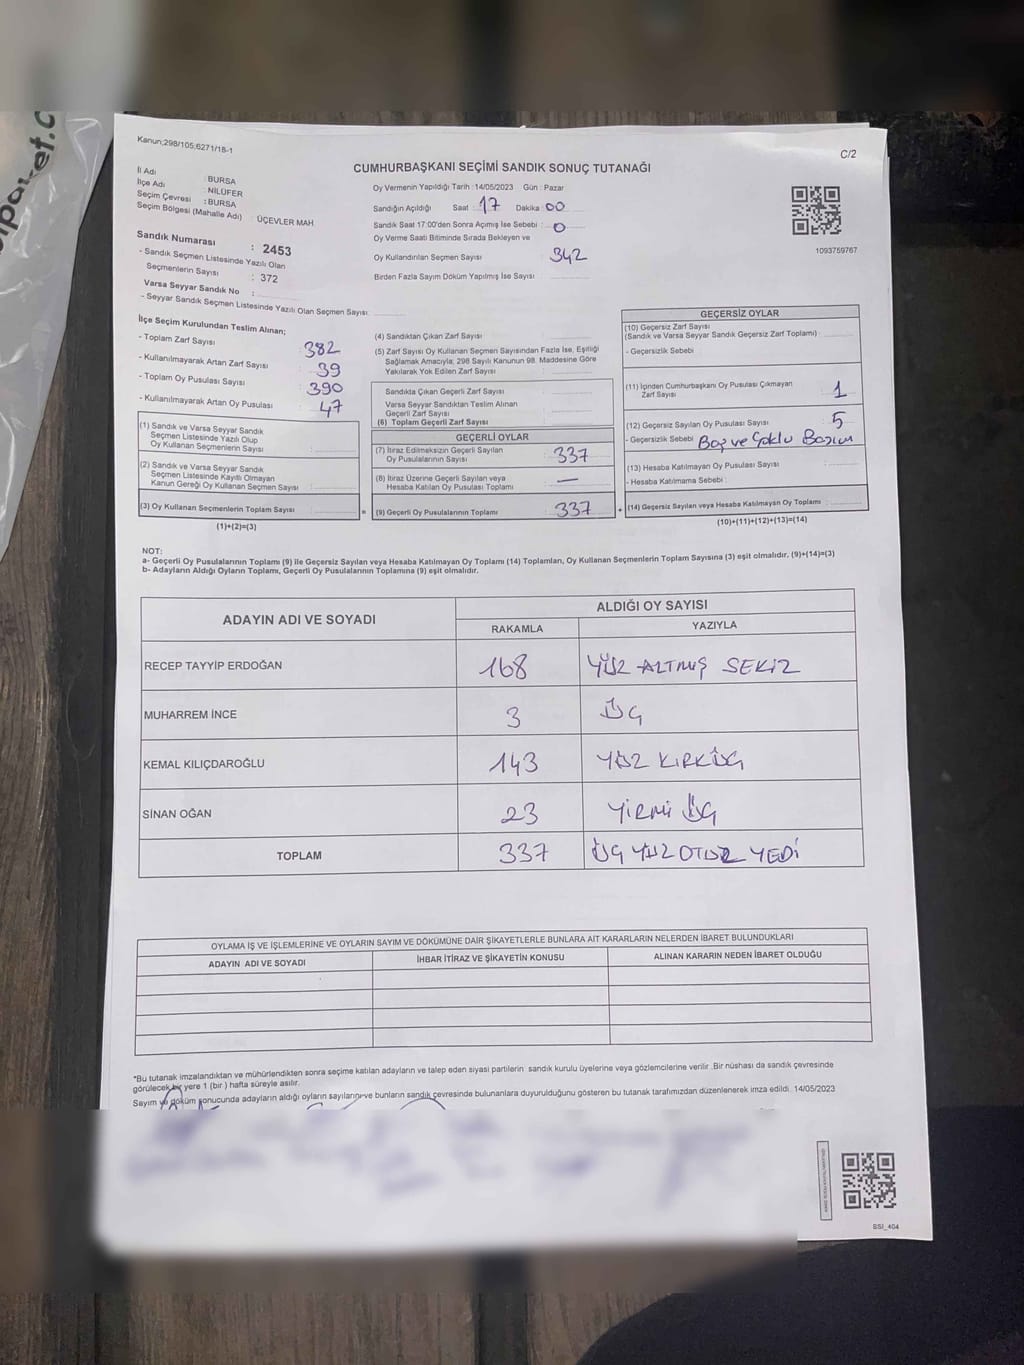 Kanun;298/105;6271/18-1
C/2
CUMHURBAŞKANI SEÇİMİ SANDIK SONUÇ TUTANAĞI
İl Adı : BURSA
İlçe Adı : NİLÜFER
Seçim Çevresi : BURSA
Seçim Bölgesi (Mahalle Adı) : ÜÇEVLER MAH
Sandık Numarası : 2453
- Sandık Seçmen Listesinde Yazılı Olan
Seçmenlerin Sayısı : 372
Varsa Seyyar Sandık No :
- Seyyar Sandık Seçmen Listesinde Yazılı Olan Seçmen Sayısı:
Oy Vermenin Yapıldığı Tarih : 14/05/2023 Gün : Pazar
Sandığın Açıldığı Saat : 17 Dakika : 00
Sandık Saat 17:00'den Sonra Açımış İse Sebebi : 0
Oy Verme Saati Bitiminde Sırada Bekleyen ve
Oy Kullandırılan Seçmen Sayısı 342
Birden Fazla Sayım Döküm Yapılmış İse Sayısı :
1093759767
İlçe Seçim Kurulundan Teslim Alınan;
- Toplam Zarf Sayısı : 382
- Kullanılmayarak Artan Zarf Sayısı : 39
- Toplam Oy Pusulası Sayısı : 390
- Kullanılmayarak Artan Oy Pusulası : 47
(1) Sandık ve Varsa Seyyar Sandık
Seçmen Listesinde Yazılı Olup
Oy Kullanan Seçmenlerin Sayısı :
(2) Sandık ve Varsa Seyyar Sandık
Seçmen Listesinde Kayıtlı Olmayan
Kanun Gereği Oy Kullanan Seçmen Sayısı :
(3) Oy Kullanan Seçmenlerin Toplam Sayısı :
(1)+(2)=(3)
(4) Sandıktan Çıkan Zarf Sayısı :
(5) Zarf Sayısı Oy Kullanan Seçmen Sayısından Fazla İse, Eşitliği
Sağlamak Amacıyla; 298 Sayılı Kanunun 98. Maddesine Göre
Yakılarak Yok Edilen Zarf Sayısı :
Sandıkta Çıkan Geçerli Zarf Sayısı :
Varsa Seyyar Sandıktan Teslim Alınan
Geçerli Zarf Sayısı :
(6) Toplam Geçerli Zarf Sayısı :
=
GEÇERLİ OYLAR
(7) İtiraz Edilmeksizin Geçerli Sayılan
Oy Pusulalarının Sayısı : 337
(8) İtiraz Üzerine Geçerli Sayılan veya
Hesaba Katılan Oy Pusulası Toplamı : —
(9) Geçerli Oy Pusulalarının Toplamı : 337
+
GEÇERSİZ OYLAR
(10) Geçersiz Zarf Sayısı
(Sandık ve Varsa Seyyar Sandık Geçersiz Zarf Toplamı) :
- Geçersizlik Sebebi :
(11) İçinden Cumhurbaşkanı Oy Pusulası Çıkmayan
Zarf Sayısı : 1
(12) Geçersiz Sayılan Oy Pusulası Sayısı : 5
- Geçersizlik Sebebi : Boş ve Çoklu Basım
(13) Hesaba Katılmayan Oy Pusulası Sayısı :
- Hesaba Katılmama Sebebi :
(14) Geçersiz Sayılan veya Hesaba Katılmayan Oy Toplamı :
(10)+(11)+(12)+(13)=(14)
NOT:
a- Geçerli Oy Pusulalarının Toplamı (9) ile Geçersiz Sayılan veya Hesaba Katılmayan Oy Toplamı (14) Toplamları, Oy Kullanan Seçmenlerin Toplam Sayısına (3) eşit olmalıdır. (9)+(14)=(3)
b- Adayların Aldığı Oyların Toplamı, Geçerli Oy Pusulalarının Toplamına (9) eşit olmalıdır.
ADAYIN ADI VE SOYADI ALDIĞI OY SAYISI
RAKAMLA YAZIYLA
RECEP TAYYİP ERDOĞAN 168 YÜZ ALTMIŞ SEKİZ
MUHARREM İNCE 3 ÜÇ
KEMAL KILIÇDAROĞLU 143 YÜZ KIRKÜÇ
SİNAN OĞAN 23 YİRMİ ÜÇ
TOPLAM 337 ÜÇ YÜZ OTUZ YEDİ
OYLAMA İŞ VE İŞLEMLERİNE VE OYLARIN SAYIM VE DÖKÜMÜNE DAİR ŞİKAYETLERLE BUNLARA AİT KARARLARIN NELERDEN İBARET BULUNDUKLARI
ADAYIN ADI VE SOYADI İHBAR İTİRAZ VE ŞİKAYETİN KONUSU ALINAN KARARIN NEDEN İBARET OLDUĞU
*Bu tutanak imzalandıktan ve mühürlendikten sonra seçime katılan adayların ve talep eden siyasi partilerin sandık kurulu üyelerine veya gözlemcilerine verilir .Bir nüshası da sandık çevresinde
görülecek bir yere 1 (bir ) hafta süreyle asılır.
Sayım ve döküm sonucunda adayların aldığı oyların sayılarını ve bunların sandık çevresinde bulunanlara duyurulduğunu gösteren bu tutanak tarafımızdan düzenlenerek imza edildi. 14/05/2023
SSI_404